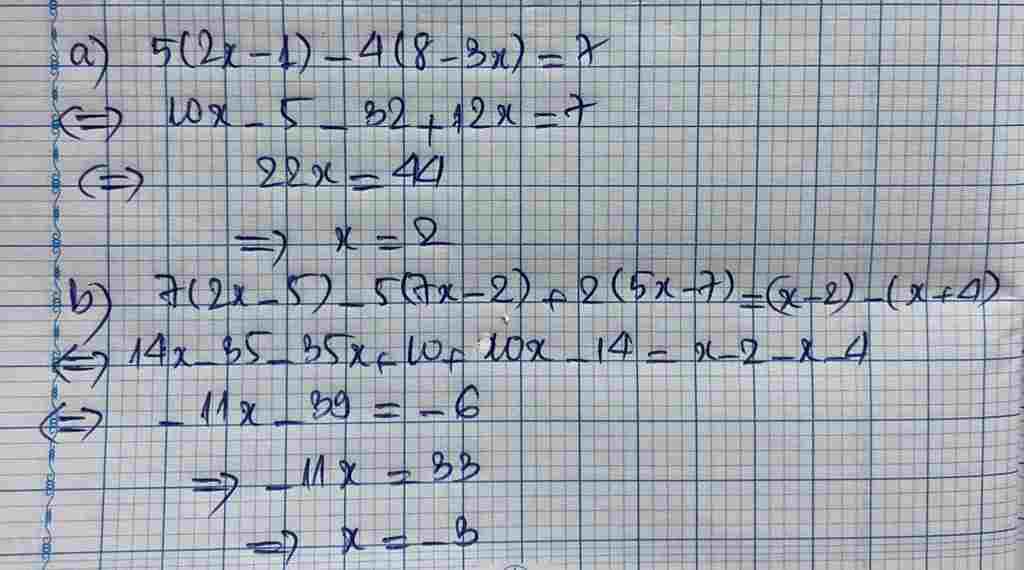 a) 5(2x-1)-4(8-3x)=7
<=> 10x-5-32+12x=7
<=> 22x=44
=> x=2
b) 7(2x-5)-5(7x-2)+2(5x-7)=(x-2)-(x+4)
<=> 14x-35-35x+10+10x-14=x-2-x-4
<=> -11x-39=-6
=> -11x=33
=> x=-3